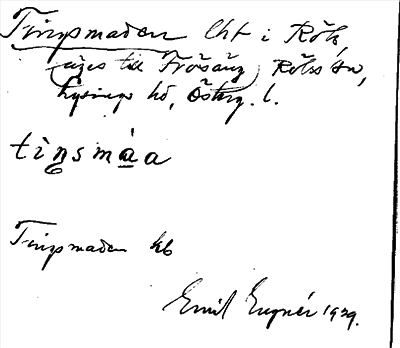 Tingsmaden Cht i Röks
(äges till Frössäng) Rökss sn,
Lysings hd, Östерg. l.
tiŋsmàa
Tingsmaden kb
Emil Eugnér 1929.